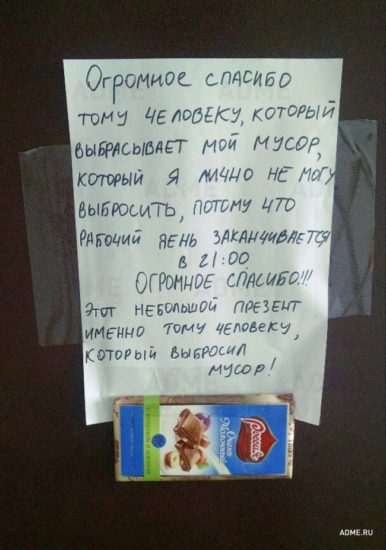 Огромное спасибо
тому человеку, который
выбрасывает мой мусор,
который я лично не могу
выбросить, потому что
рабочий день заканчивается
в 21:00
Огромное спасибо!!!
Этот небольшой презент
именно тому человеку,
который выбросил
мусор!
Россия
Очень
Молочный
ADME.RU